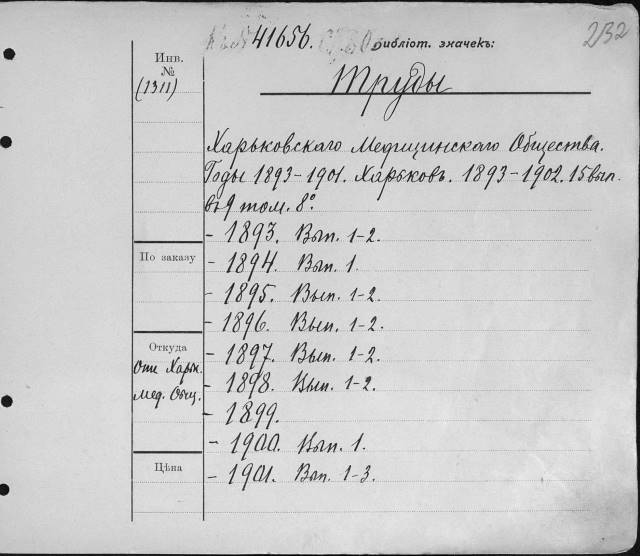 41656. Библіот. значекъ: 232
Инв.
№
(1311)
Труды
Харьковскаго Медицинскаго Общества.
Годы 1893-1901. Харьковъ. 1893-1902. 15 вып.
въ 9 том. 8º.
- 1893. Вып. 1-2.
- 1894. Вып. 1.
- 1895. Вып. 1-2.
- 1896. Вып. 1-2.
- 1897. Вып. 1-2.
- 1898. Вып. 1-2.
- 1899.
- 1900. Вып. 1.
- 1901. Вып. 1-3.
По заказу
Откуда
Отъ Харьк.
Мед. Общ.
Цѣна